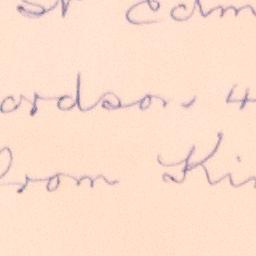 St Edm
ardson, 4
from Kin